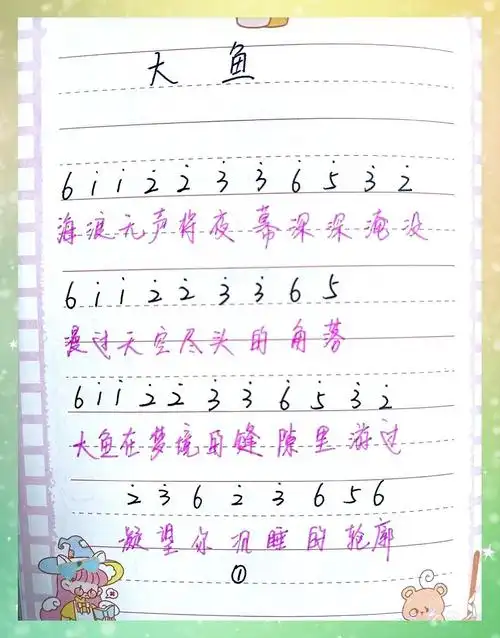 大鱼
6 i i 2̇ 2̇ 3̇ 3̇ 6̇ 5̇ 3̇ 2̇
海浪无声将夜幕深深淹没
6 i i 2̇ 2̇ 3̇ 3̇ 6 5
漫过天空尽头的角落
6 i i 2̇ 2̇ 3̇ 3̇ 6̇ 5̇ 3̇ 2̇
大鱼在梦境的缝隙里游过
2̇ 3̇ 6 2̇ 3̇ 6 5 6
凝望你沉睡的轮廓
①